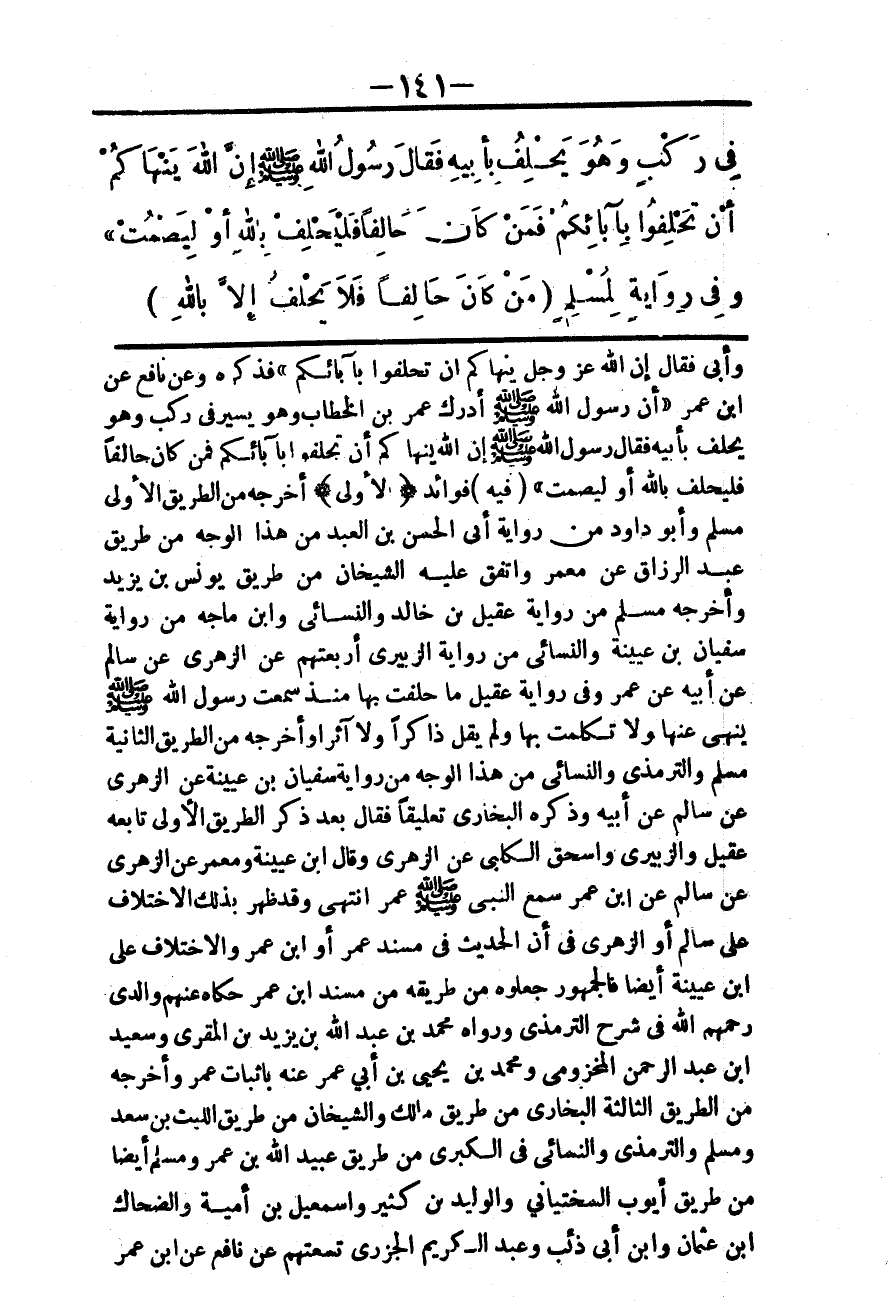 -١٤١-
فِي رَكْبٍ وَهُوَ يَحْلِفُ بِأَبِيهِ فَقَالَ رَسُولُ اللهِ ﷺ إِنَّ اللهَ يَنْهَاكُمْ
أَنْ تَحْلِفُوا بِآبَائِكُمْ فَمَنْ كَانَ حَالِفاً فَلْيَحْلِفْ بِاللهِ أَوْ لِيَصْمُتْ»
وَفِي رِوَايَةٍ لِمُسْلِمٍ (مَنْ كَانَ حَالِفاً فَلَا يَحْلِفْ إِلاَّ بِاللهِ )
وأبى فقال إن الله عز وجل ينهاكم ان تحلفوا بآبائكم » فذكره وعن نافع عن
ابن عمر «أن رسول الله ﷺ أدرك عمر بن الخطاب وهو يسير فى ركب وهو
يحلف بأبيه فقال رسول الله ﷺ إن الله ينهاكم أن تحلفوا بآبائكم فمن كان حالفاً
فليحلف بالله أو ليصمت» ( فيه ) فوائد ﴿ الأولى ﴾ أخرجه من الطريق الأولى
مسلم وأبو داود من رواية أبى الحسن بن العبد من هذا الوجه من طريق
عبد الرزاق عن معمر واتفق عليه الشيخان من طريق يونس بن يزيد
وأخرجه مسلم من رواية عقيل بن خالد والنسائى وابن ماجه من رواية
سفيان بن عيينة والنسائى من رواية الزبيرى أربعتهم عن الزهرى عن سالم
عن أبيه عن عمر وفى رواية عقيل ما حلفت بها منذ سمعت رسول الله ﷺ
ينهى عنها ولا تكلمت بها ولم يقل ذاكراً ولا آثرا وأخرجه من الطريق الثانية
مسلم والترمذى والنسائى من هذا الوجه من رواية سفيان بن عيينة عن الزهرى
عن سالم عن أبيه وذكره البخارى تعليقاً فقال بعد ذكر الطريق الأولى تابعه
عقيل والزبيرى واسحق الكلبى عن الزهرى وقال ابن عيينة ومعمر عن الزهرى
عن سالم عن ابن عمر سمع النبى ﷺ عمر انتهى وقد ظهر بذلك الاختلاف
على سالم أو الزهرى فى أن الحديث فى مسند عمر أو ابن عمر والاختلاف على
ابن عيينة أيضا فالجمهور جعلوه من طريقه من مسند ابن عمر حكاه عنهم والدى
رحمهم الله فى شرح الترمذى ورواه محمد بن عبد الله بن يزيد بن المقرى وسعيد
ابن عبد الرحمن المخزومى ومحمد بن يحيى بن أبي عمر عنه باثبات عمر وأخرجه
من الطريق الثالثة البخارى من طريق مالك والشيخان من طريق الليث بن سعد
ومسلم والترمذى والنسائى فى الكبرى من طريق عبيد الله بن عمر ومسلم أيضا
من طريق أيوب السختياني والوليد بن كثير واسمعيل بن أمية والضحاك
ابن عثمان وابن أبى ذئب وعبد الكريم الجزرى تسعتهم عن نافع عن ابن عمر